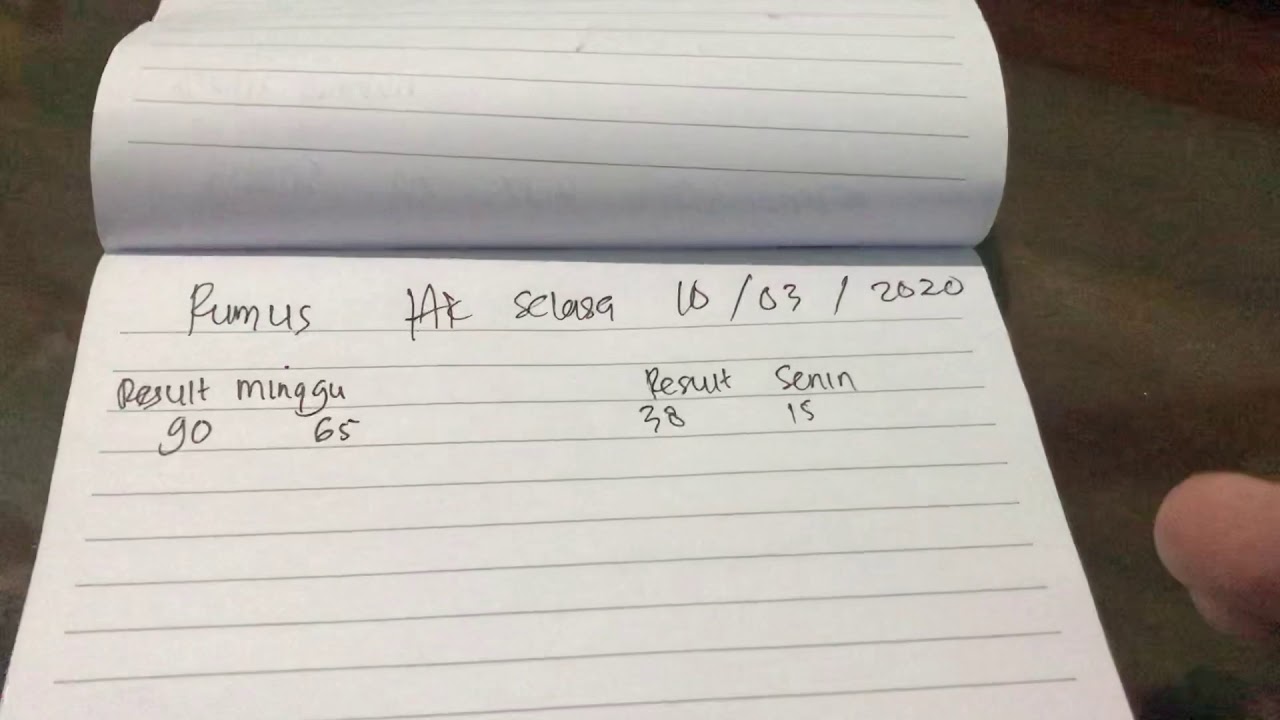 Rumus HK Selasa 10 / 03 / 2020
Result Minggu Result Senin
90 65 38 15